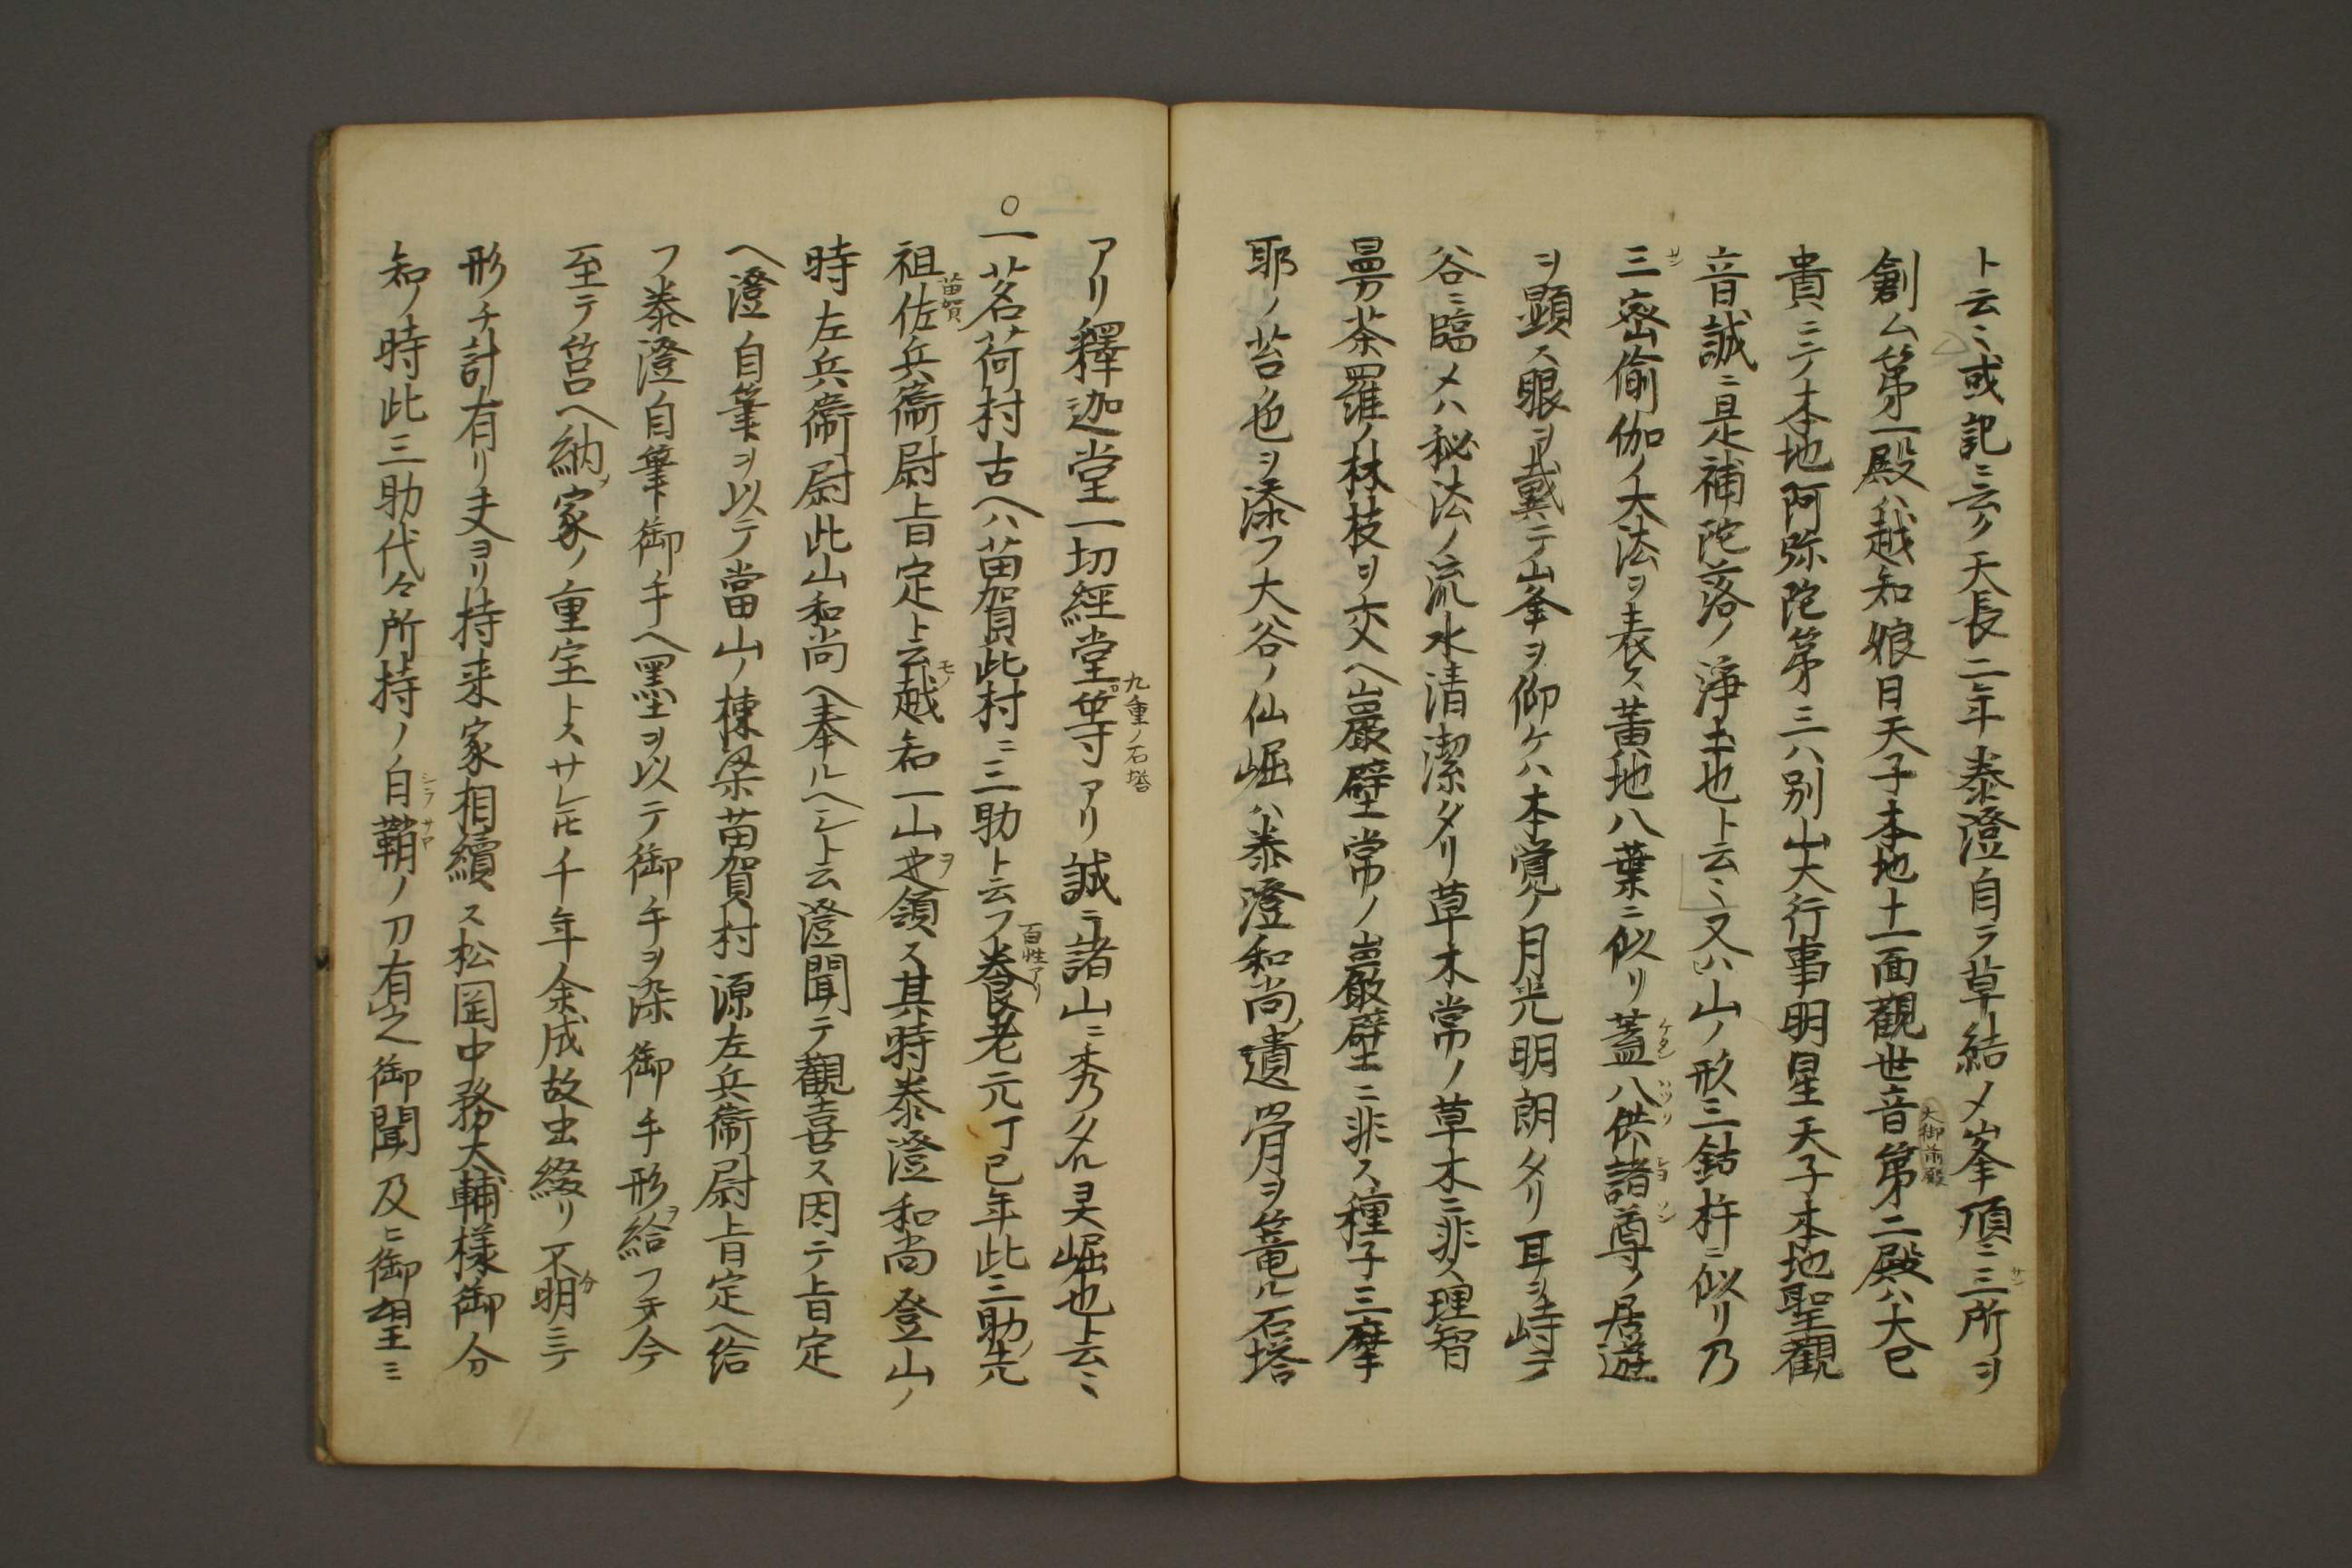 ト云ミ或記ニ云ク天長二年泰澄自ラ草結メ峯頂ニ三所ヲ
創ム第一殿ハ越知娘日天子本地十一面觀世音第二殿ハ大己
大御前殿
貴ニテ本地阿弥陀第三ハ別山大行事明星天子本地聖觀
音誠ニ是補陀落ノ浄土也ト云ミ又ハ山ノ形三鈷杵ニ似リ乃
三密偷伽ノ大法ヲ表ス黄地八葉ニ似リ蓋八供諸尊ノ居遊
ヲ顕ス眼ヲ戴テ山峯ヲ仰ケハ本覚ノ月光明朗タリ耳ヲ峙テ
谷ニ臨メハ秘法ノ流水清潔タリ草木常ノ草木ニ非ス理智
曼荼羅ノ林枝ヲ交ヘ巖壁常ノ巖壁ニ非ス種子三摩
耶ノ苔色ヲ添フ大谷ノ仙崛ハ泰澄和尚遺骨ヲ篭ル石塔
アリ釋迦堂一切經堂等アリ誠ニ諸山ニ秀タル灵崛也ト云ミ
九重ノ石塔
○一茗荷村古ヘハ苗賀此村ニ三助ト云フ養老元丁巳年此三助先
百性アリ
祖佐兵衞尉旨定ト云越知一山之領ス其時泰澄和尚登山ノ
苗賀
モノ
ヲ
時左兵衞尉此山和尚ヘ奉ルヘシト云澄聞テ觀喜ス因テ旨定
ヘ澄自筆ヲ以テ當山ノ棟梁苗賀村源左兵衞尉旨定ヘ給
フ泰澄自筆御手ヘ墨ヲ以テ御手ヲ染御手形給フ于今
ヲ
至テ筥ヘ納家ノ重宝トスサレ𪜈千年余成故虫綴リ不明ミテ
分
形チ計有リ夫ヨリ持来家相續ス松岡中務大輔様御分
知ノ時此三助代々所持ノ白鞘ノ刀有之御聞及ヒ御望ミ
シラサヤ